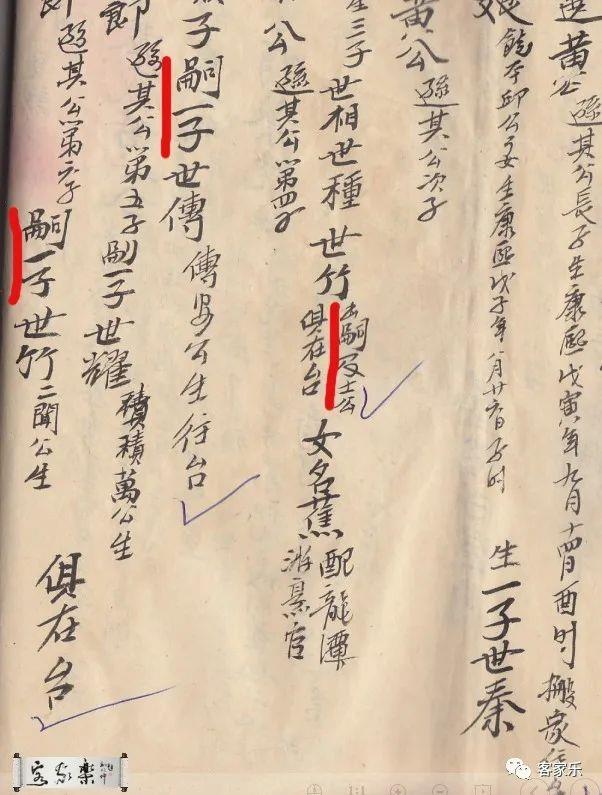 黄公 遜其公長子生康熙戊寅年九月十四日酉时 搬家
娘 饒平邱公女生康熙戊子年八月廿六日子时 生一子世秦
黄公 遜其公次子
生三子世相世種世竹 出嗣及士公 俱在台 女名蕉 配龍潭 游景官
公 遜其公第四子
子嗣一子世傳 公生往台
郎 遜其公第五子嗣一子世耀 積積萬公生
郎 遜其公第六子
嗣一子世竹 二聞公生 俱在台
客家樂
客家乐